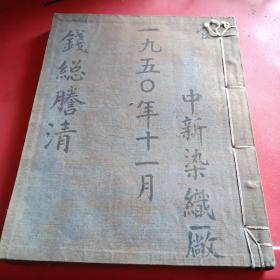 中新染織厰
一九五〇年十一月
錢総謄清